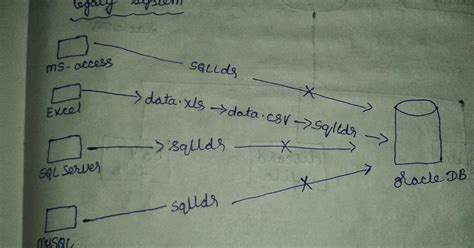 legacy system
MS-access
SQLLdr
X
Excel
data.xls
data.csv
sqlldr
SQL Server
sqlldr
X
Oracle DB
MySQL
sqlldr
X